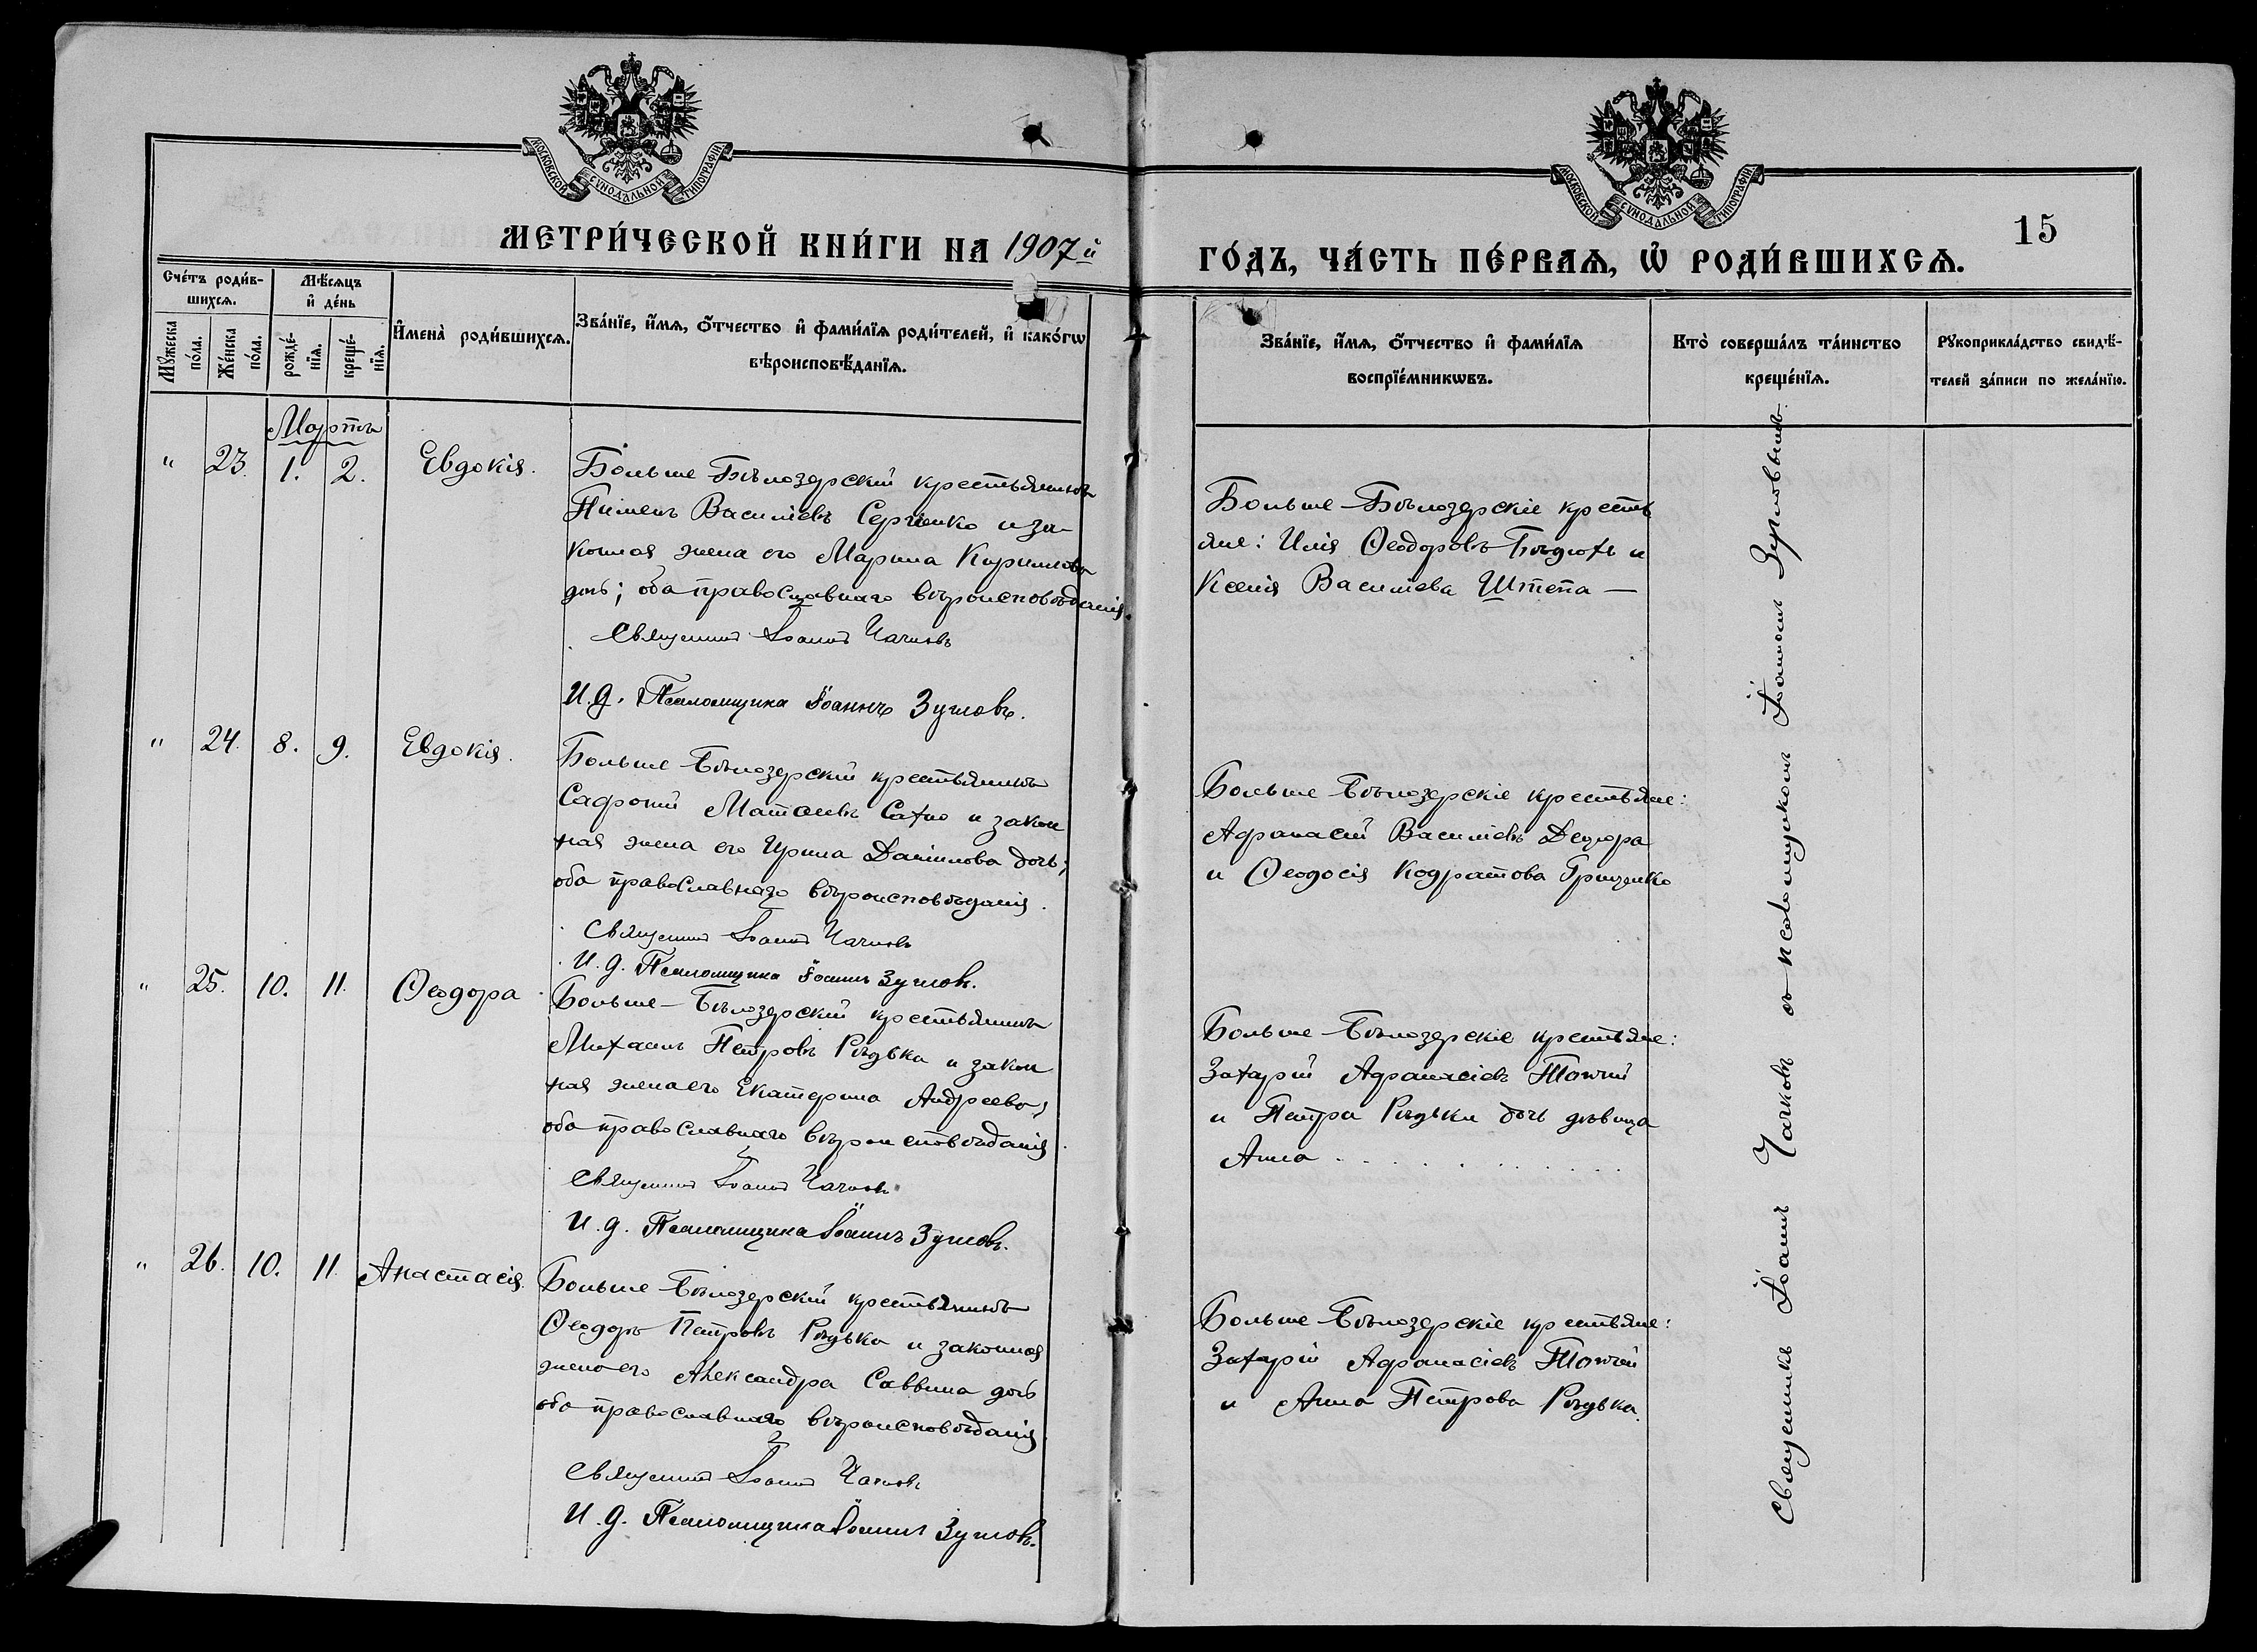 МОСКОВСКОЙ СѴНОДАЛЬНОЙ ТИПОГРАФІИ
МОСКОВСКОЙ СѴНОДАЛЬНОЙ ТИПОГРАФІИ
МЕТРИ́ЧЕСКОЙ КНИ́ГИ НА 1907й
ГО́ДЪ, ЧА́СТЬ ПЕ́РВАѦ, Ѡ҆ РОДИ́ВШИХСѦ.
15
Сче́тъ роди́в-
шихсѧ.
Мꙋ́жеска по́ла.
Же́нска по́ла.
Мѣ́сѧцъ
и҆ де́нь
рожде́-
нїѧ.
креще́-
нїѧ.
И҆мена̀ роди́вшихсѧ.
Зва́нїе, и҆́мѧ, ѻ҆́тчество и҆ фами́лїѧ роди́телей, и҆ како́гѡ
вѣроисповѣ́данїѧ.
Зва́нїе, и҆́мѧ, ѻ҆́тчество и҆ фами́лїѧ
воспрїе́мникѡвъ.
Кто̀ соверша́лъ та́инство
креще́нїѧ.
Рꙋкоприкла́дство свидѣ́-
телей за́писи по жела́нїю.
Мартъ
" 23. 1. 2. Евдокія.
Больше-Бѣлозерскій крестьянинъ
Пименъ Василіевъ Сергіенко и за-
конная жена его Марина Кириллова
дочь; оба православнаго вѣроисповѣданія.
Священникъ Іоаннъ Чачковъ
И. д. Псаломщика Іоаннъ Зугловъ.
Больше-Бѣлозерскіе кресть
яне: Илія Ѳеодоровъ и
Ксенія Василіева Штепа —
" 24. 8. 9. Евдокія.
Больше-Бѣлозерскій крестьянинъ
Сафроній Матѳіевъ Сахно и закон
ная жена его Ирина Даніилова дочь;
оба православнаго вѣроисповѣданія.
Священникъ Іоаннъ Чачковъ
И. д. Псаломщика Іоаннъ Зугловъ.
Больше-Бѣлозерскіе крестьяне:
Афанасій Василіевъ
и Ѳеодосія Кодратова Гриценко
" 25. 10. 11. Ѳеодора
Больше-Бѣлозерскій крестьянинъ
Михаилъ Петровъ Рѣдька и закон
ная жена его Екатерина Андреева;
оба православнаго вѣроисповѣданія.
Священникъ Іоаннъ Чачковъ
И. д. Псаломщика Іоаннъ Зугловъ.
Больше-Бѣлозерскіе крестьяне:
Захарій Афанасіевъ
и Петра Рѣдьки дочь дѣвица
Анна
" 26. 10. 11. Анастасія.
Больше-Бѣлозерскій крестьянинъ
Ѳеодоръ Петровъ Рѣдька и законная
жена его Александра Саввина дочь
оба православнаго вѣроисповѣданія.
Священникъ Іоаннъ Чачковъ
И. д. Псаломщика Іоаннъ Зугловъ.
Больше-Бѣлозерскіе крестьяне:
Захарій Афанасіевъ
и Анна Петрова Рѣдька.
Священникъ Іоаннъ Чачковъ съ псаломщикомъ Іоанномъ Зугловымъ.